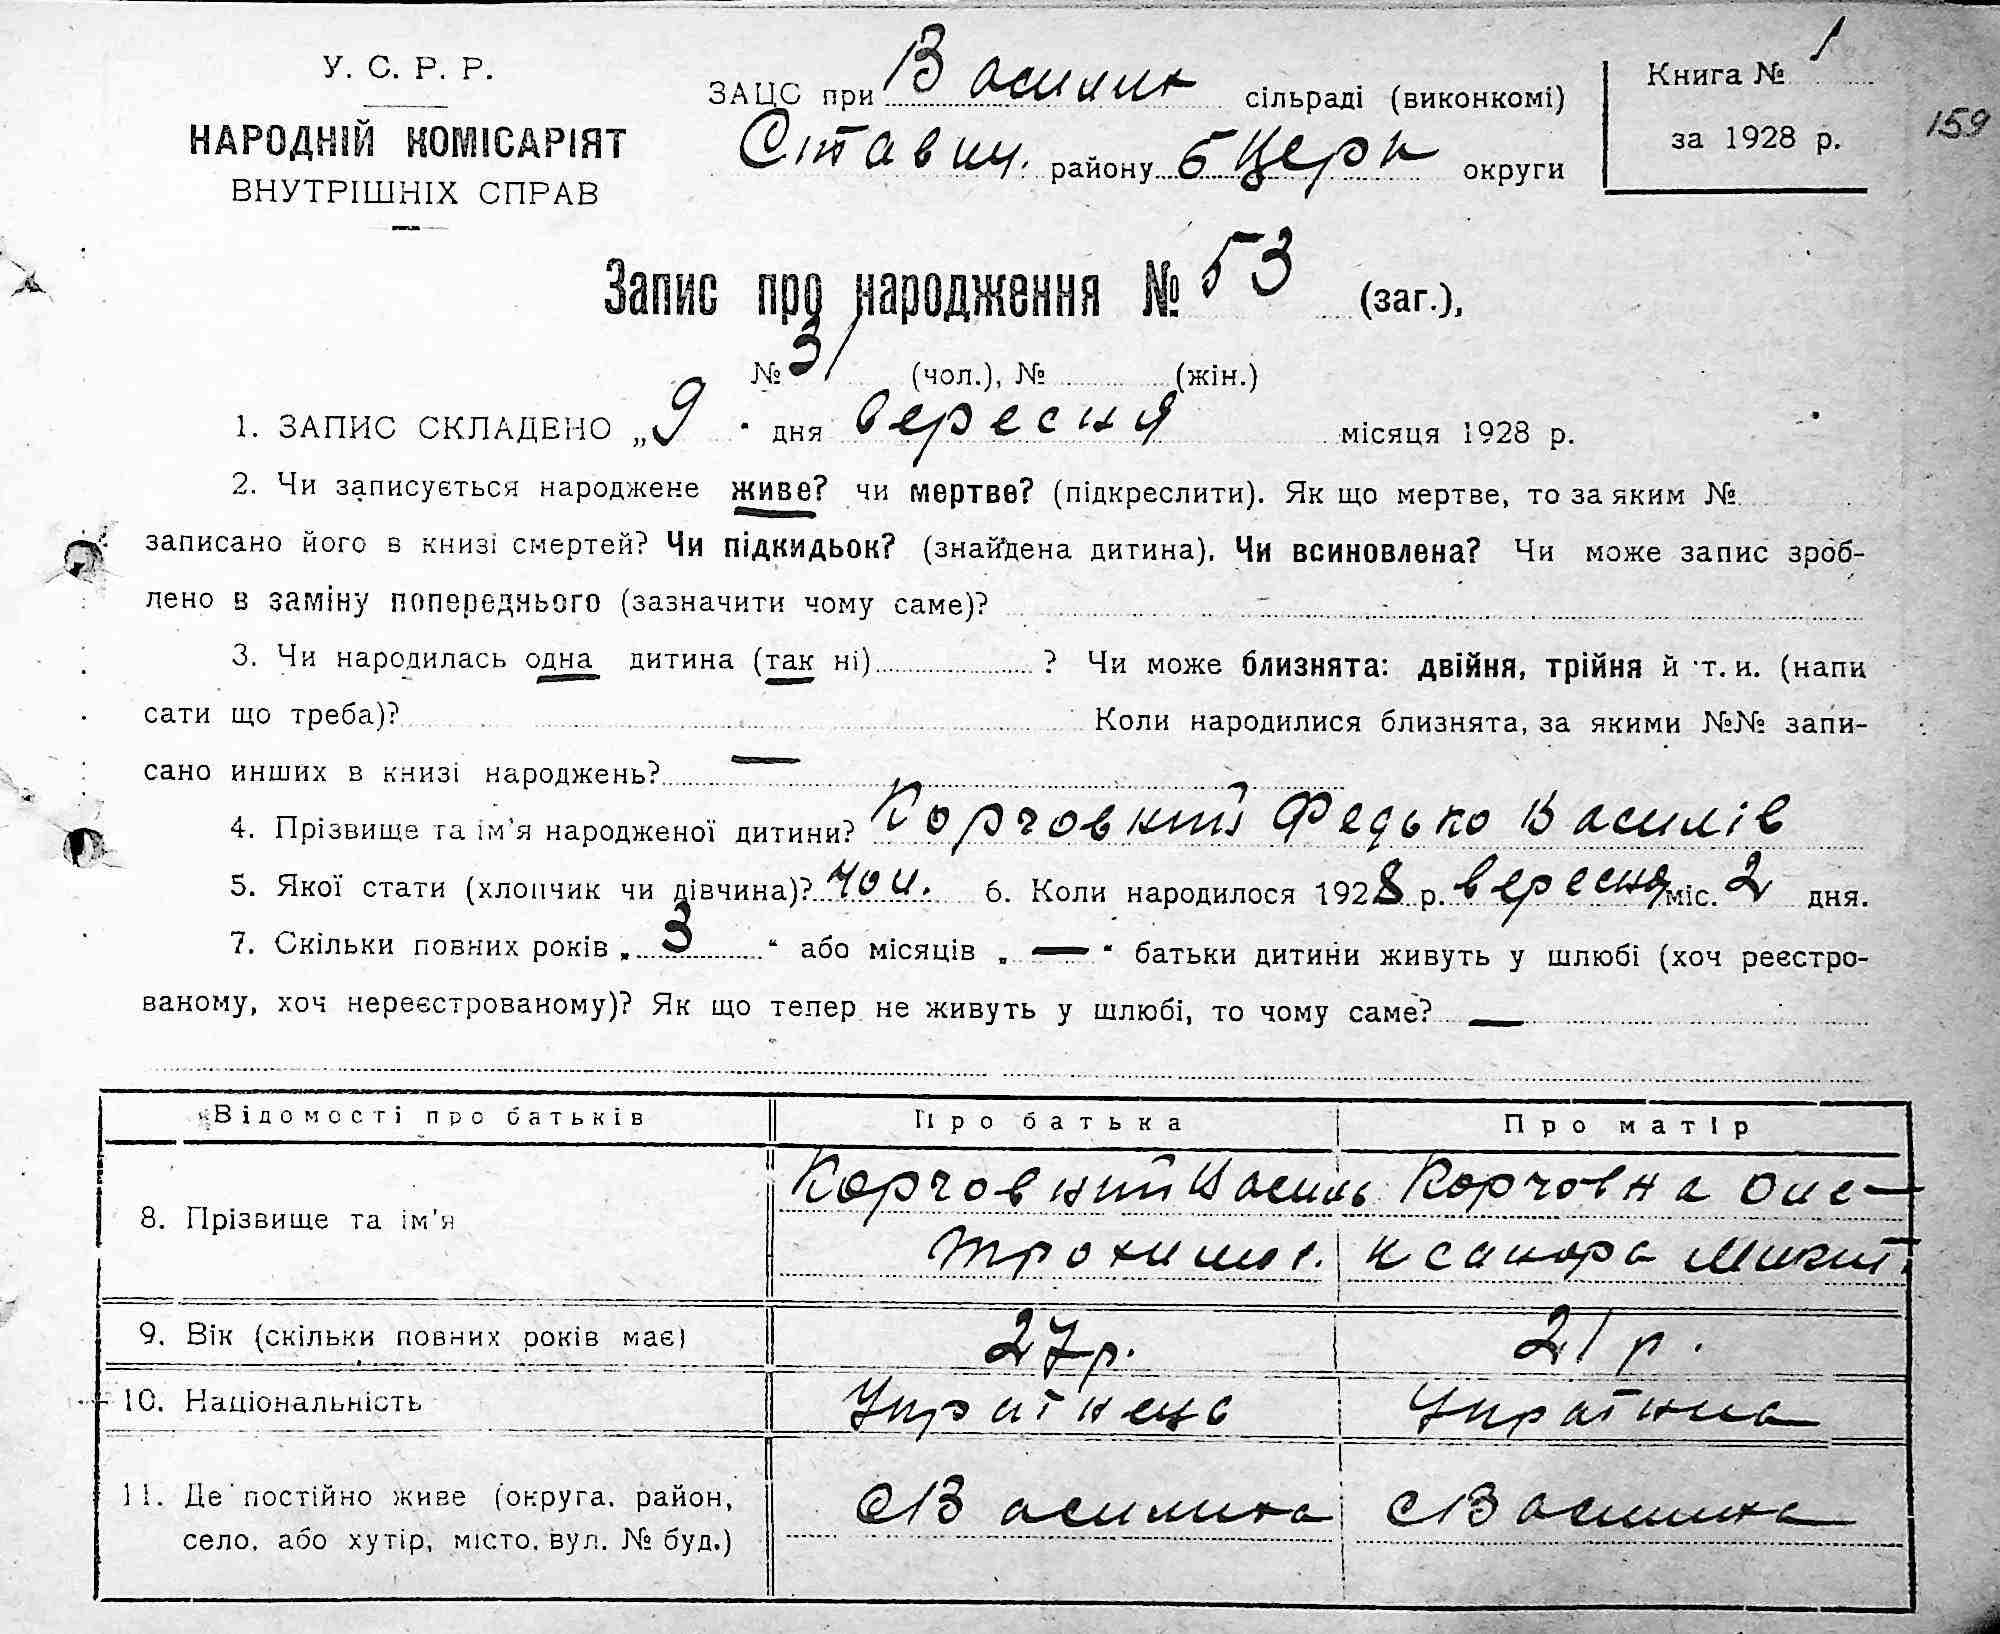 У. С. Р. Р.
НАРОДНІЙ КОМІСАРІЯТ
ВНУТРІШНІХ СПРАВ
ЗАЦС при Василих сільраді (виконкомі)
Ставищ. району Б Церк округи
Книга № 1
за 1928 р.
159
Запис про народження № 53 (заг.),
№ 31 (чол.), № (жін.)
1. ЗАПИС СКЛАДЕНО „9" дня вересня місяця 1928 р.
2. Чи записується народжене живе? чи мертве? (підкреслити). Як що мертве, то за яким №
записано його в книзі смертей? Чи підкидьок? (знайдена дитина). Чи всиновлена? Чи може запис зроб-
лено в заміну попереднього (зазначити чому саме)?
3. Чи народилась одна дитина (так ні) ? Чи може близнята: двійня, трійня й т. и. (напи
сати що треба)? Коли народилися близнята, за якими №№ запи-
сано инших в книзі народжень? —
4. Прізвище та ім'я народженої дитини? Корчовний Федько Василів
5. Якої стати (хлопчик чи дівчина)? чол. 6. Коли народилося 1928 р. вересня міс. 2 дня.
7. Скільки повних років „ 3 " або місяців „ — " батьки дитини живуть у шлюбі (хоч реєстро-
ваному, хоч нереєстрованому)? Як що тепер не живуть у шлюбі, то чому саме? —
Відомості про батьків Про батька Про матір
8. Прізвище та ім'я Корчовний Василь Корчовна Оле-
Трохимов. ксандра Микит.
9. Вік (скільки повних років має) 27 р. 21 р.
10. Національність Українець Українка
11. Де постійно живе (округа, район, с Василиха с Василиха
село, або хутір, місто, вул. № буд.)